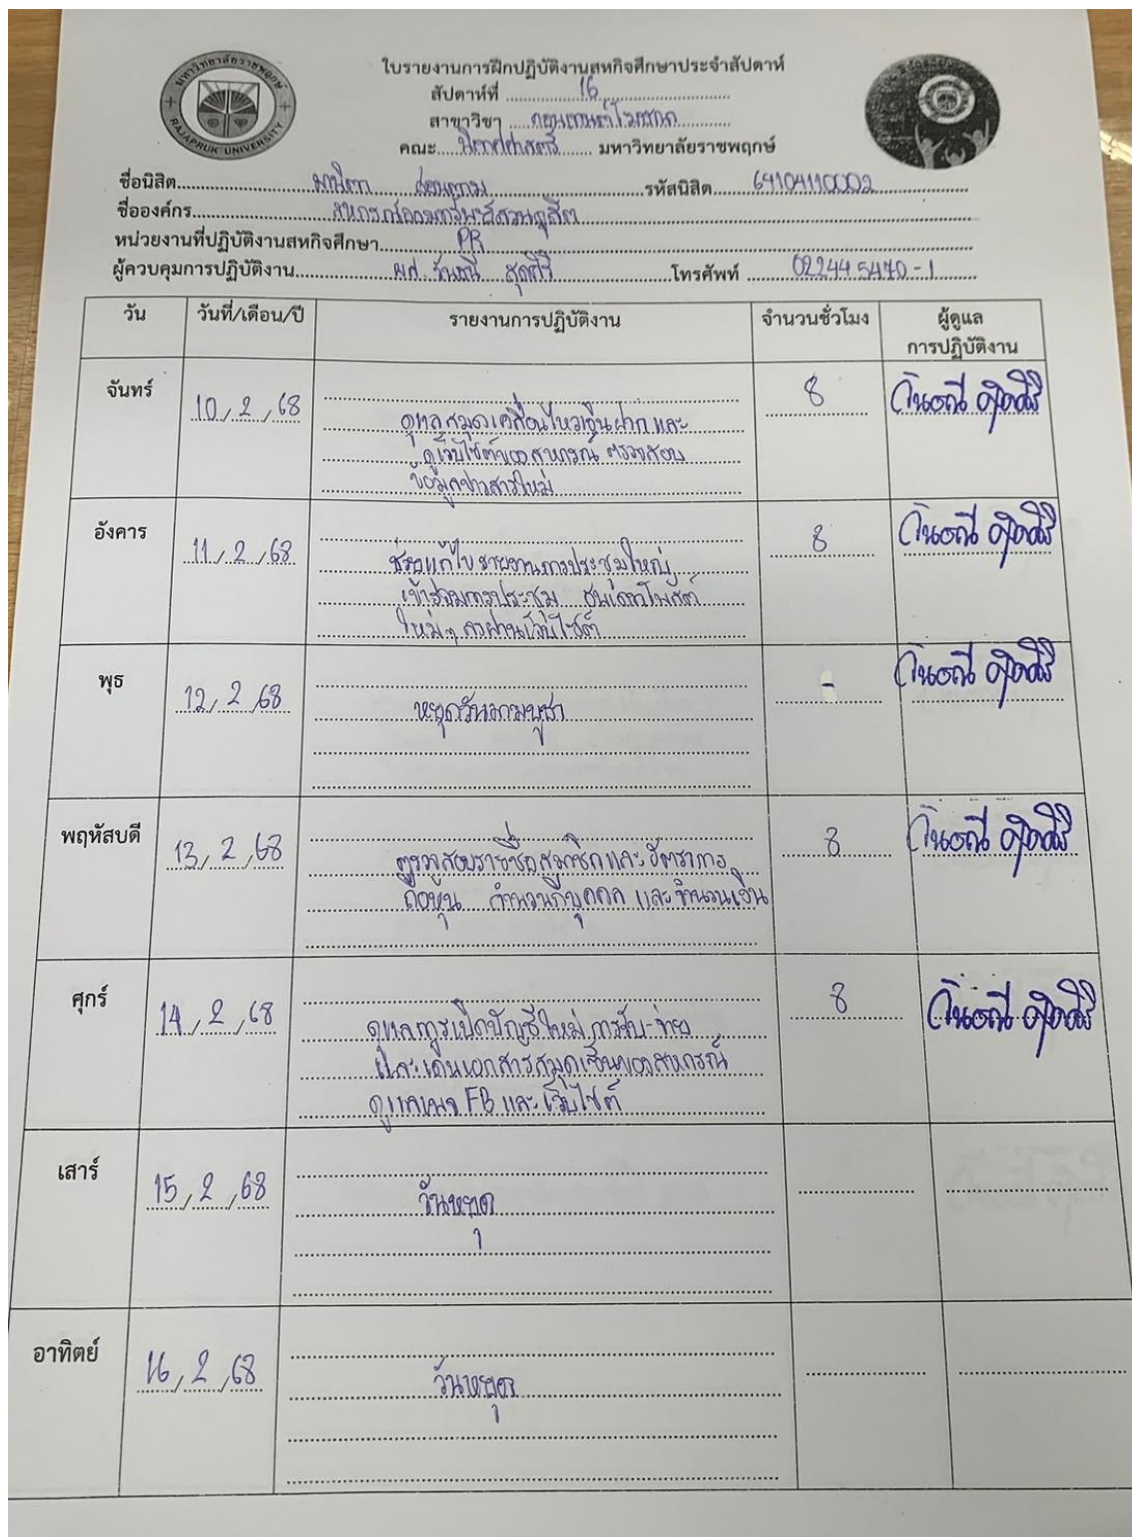 มหาวิทยาลัยราชพฤกษ์
RAJAPRUK UNIVERSITY
ใบรายงานการฝึกปฏิบัติงานสหกิจศึกษาประจำสัปดาห์
สัปดาห์ที่ 16
สาขาวิชา
คณะ นิเทศศาสตร์ มหาวิทยาลัยราชพฤกษ์
ชื่อนิสิต รหัสนิสิต 64104110002
ชื่อองค์กร สหกรณ์ออมทรัพย์สวนดุสิต
หน่วยงานที่ปฏิบัติงานสหกิจศึกษา PR
ผู้ควบคุมการปฏิบัติงาน ผศ. วันณี สุดศิริ โทรศัพท์ 02244 5470-1
วัน วันที่/เดือน/ปี รายงานการปฏิบัติงาน จำนวนชั่วโมง ผู้ดูแล
การปฏิบัติงาน
จันทร์ 10/2/68 8
ดูแลสมุดเคลื่อนไหวเงินฝาก และ
ดูเว็บไซต์ของสหกรณ์ ตรวจสอบ
ข้อมูลข่าวสารใหม่
อังคาร 11/2/68 8
ช่วยแก้ไขรายงานการประชุมใหญ่
เข้าร่วมการประชุม โพสต์
ใหม่ๆ ผ่านเว็บไซต์
พุธ 12/2/68 -
หยุดวันมาฆบูชา
พฤหัสบดี 13/2/68 8
ตรวจสอบรายชื่อสมาชิกและอัตราการ
ถือหุ้น และจำนวนเงิน
ศุกร์ 14/2/68 8
ดูแลการเปิดบัญชีใหม่ การรับ-จ่าย
และเดินเอกสารสมุดเซ็นของสหกรณ์
ดูแลเพจ FB และเว็บไซต์
เสาร์ 15/2/68 วันหยุด
อาทิตย์ 16/2/68 วันหยุด